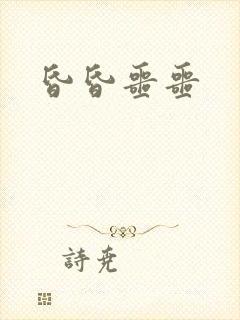 昏昏噩噩
詩尧